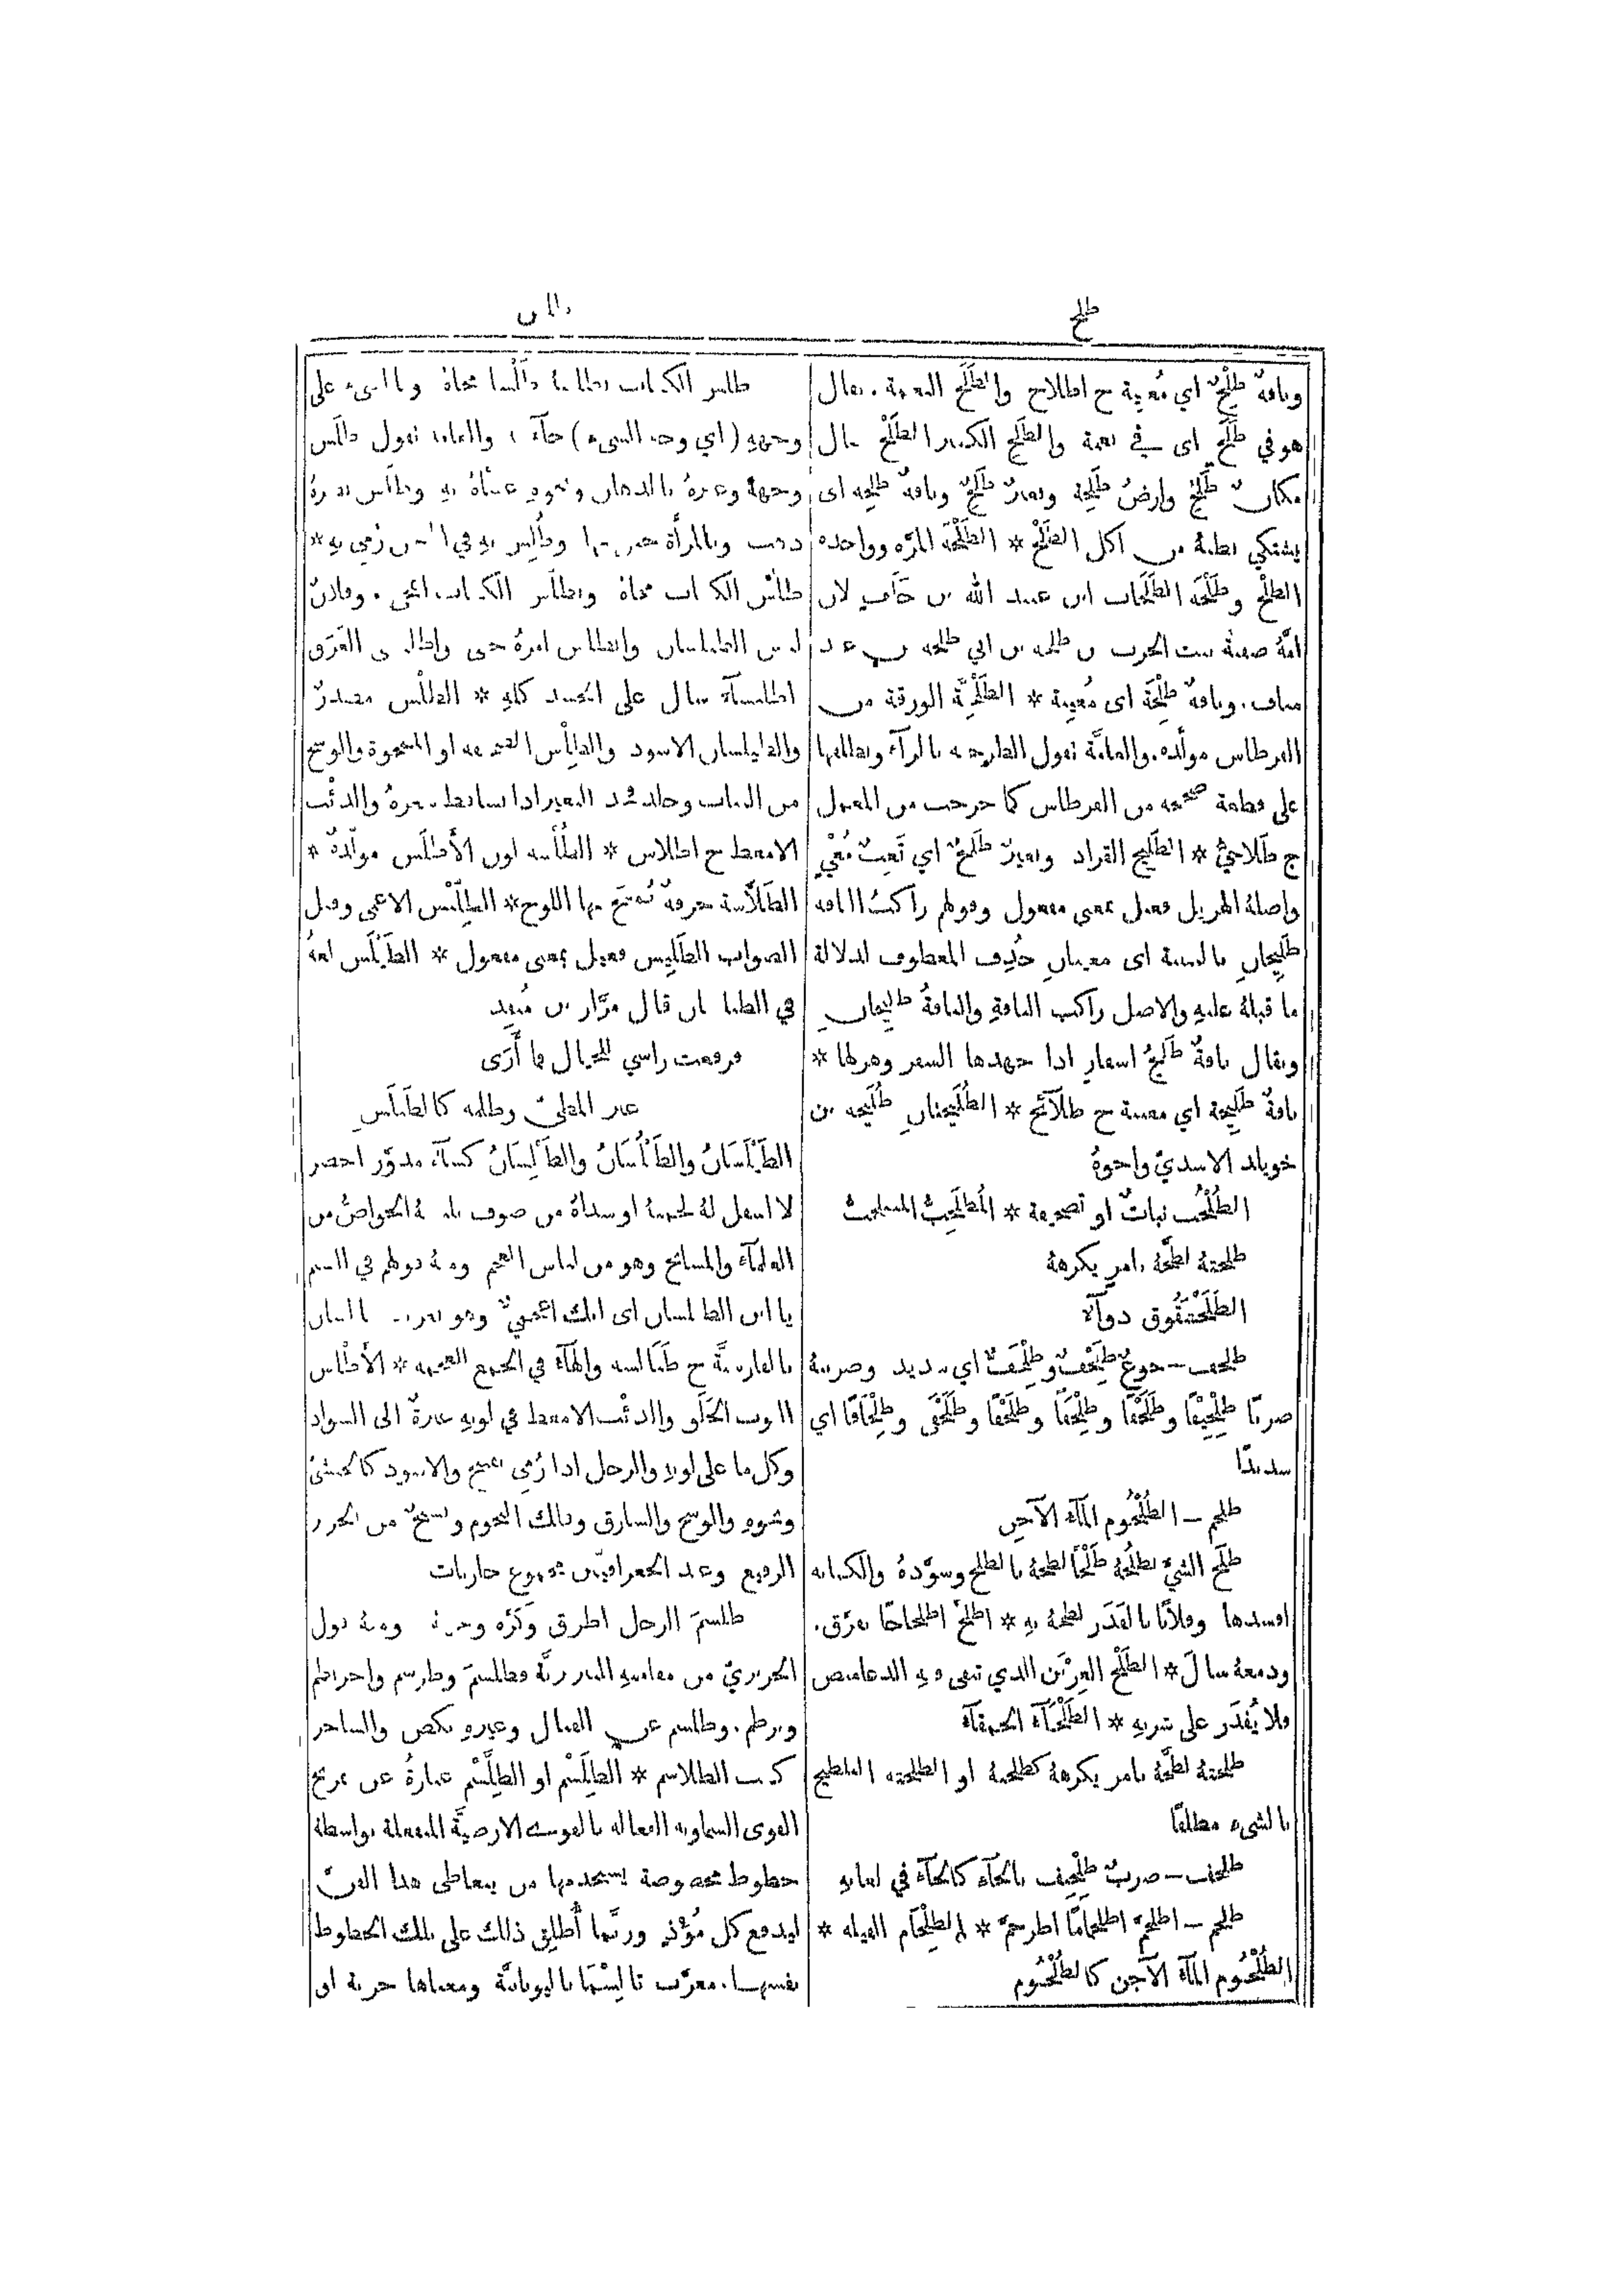 طلح
وناقةٌ طِلْحٌ اي مُعيِية ج اطلاح والطَلَح النعمة. يقال
هو في طَلَحٍ اى في نعمة والطَلِح الكثير الطَلْح يقال
مكانٌ طَلِحٌ وارضٌ طَلِحة وبعيرٌ طَلِحٌ وناقةٌ طلحة اى
يشتكي بطنهُ من اكل الطَلْح * الطَلْحَة المرَّة وواحدة
الطلْح وطَلْحَة الطَلَحات ابن عبيد الله بن خَلَف لان
امَّهُ صفيَّة بنت الحرث بن طلحة بن ابي طلحة بن عبد
مناف. وناقةٌ طِلْحَة اى مُعيِية * الطَلْحِيَّة الورقة من
القرطاس مولَّدة. والعامَّة تقول الطرحية بالرآء وتطلقها
على قطعة صحيحة من القرطاس كما خرجت من المعمل
ج طَلَاحيّ * الطَلِيح القراد وبعيرٌ طَلِيحٌ اي تَعِبٌ مُعْيٍ
واصلهُ الهزيل فعيل بمعنى مفعول وقولهم راكبُ الناقة
طَلِيحانِ بالتثنية اى معييان حُذِف المعطوف لدلالة
ما قبلهُ عليهِ والاصل راكب الناقةِ والناقةُ طليحانِ
ويقال ناقةٌ طَلِيحُ اسفارٍ اذا جهدها السفر وهزلها *
ناقةٌ طَلِيحة اي معيية ج طلآئح * الطُلَيحتانِ طُلَيحة بن
خويلد الاسديّ واخوهُ
الطُلْحُب نباتٌ او تصحيفة * المُطلَحِبّ المسلحبّ
طلحثهُ لطَّخهُ بامرٍ يكرههُ
الطَلَحْشَقُوق دوآء
طلحف – جوعٌ طِلَحْفٌ وطِلْحَفٌ اي شديد وضربهُ
ضربًا طِلْحِيفًا وطَلَحْفًا وطِلْحَفًا وطَلْحَفًا وطَلَحْفَى وطِلْحَافًا اي
شديدًا
طلحم – الطُلْحُوم المآء الآجن
طلَخ الشيَّ يطلُخُهُ طَلْخًا لطخهُ بالطلخ وسوَّدهُ والكتابة
افسدها وفلانًا بالقَذَر لطخهُ بهِ * اطلخَّ اطلخاخًا تفرَّق.
ودمعهُ سالَ * الطَلْخ الغِرْيَن الذي تبقى فيهِ الدعاميص
ولا يُقدَر على شربهِ * الطَلْخَآء الحمقآء
طلخثهُ لطَّخهُ بامرٍ يكرههُ كطلحثهُ او الطلخثة التلطيخ
بالشيء مطلقًا
طلخف – ضربٌ طِلْخِيف بالخآء كالحآء في لغاتهِ
طلخم – اطلخمّ اطلخمامًا اطرخمّ * الطِلْخَام الفيلة *
الطُلْخُوم المآء الآجن كالطُلْحُوم
وجههِ (اي وجه الشيء) جآء. والعامة تقول طلَّس
وجههُ وغيرهُ بالدهان ونحوهِ غشَّاهُ بهِ وطلَس بصرهُ
ذهب
طلَّس الكتاب محاهُ وانطلس الكتاب امَّحى. وفلانٌ
لبس الطيلسان وانطلس امرهُ خفى واطلسى العَرَق
اطلسآء سال على الجسد كلهِ * الطَلْس مصدرٌ
والطيلسان الاسود والطِلْس الصحيفة او الممحوَّة والوسخ
من الثياب وجلد فخذ البعير اذا تساقط شعرهُ والذئب
الامعط ج اطلاس * الطُلْسة لون الأَطلَس مولَّدة *
الطَلَّاسة خرقةٌ تُمسَح بها اللوح * الطِلّيْس الاعمى وقيل
الصواب الطَلِيس فعيل بمعنى مفعول * الطَيْلَس لغةٌ
في الطيلسان قال مرَّار بن
فرفعت راسي للخيال فما أَرَى
غير المطيّ وظلمة كالطَيلَسِ
الطَيْلَسَانُ والطَيْلُسَانُ والطَيْلِسَانُ كسآء مدوَّر اخضر
لا اسفل لهُ لحمتهُ او سداهُ من صوف يلبسهُ الخواصُّ من
العلمآء والمشايخ وهو من لباس العجم ومنهُ قولهم في الشتم
يا ابن الطيلسان اى انك اعجميٌّ وهو تعريب تالسان
بالفارسيَّة ج طَيَالسة والهآء في الجمع للعجمة * الأَطْلَس
الثوب الخَلَق والذئب الامعط في لونهِ غبرةٌ الى السواد
وكل ما على لونهِ والرجل اذا رُمِي بقبيح والاسود كالحبشيّ
ونحوهِ والوسخ والسارق وفلك النجوم ونسيجٌ من الحرير
الرفيع وعند الجغرافيّين مجموع خارتات
طلسم الرجل اطرق وكَرَّه وجههُ ومنهُ قول
الحريريّ من مقامتهِ التبريزيَّة فطلسمَ وطرسم واخرنطم
وبرطم. وطلسم عن القتال وغيرهِ نكص والساحر
كتب الطلاسم * الطِلَسْم او الطِلَّسْم عبارةٌ عن تمزيج
القوى السماوية الفعالة بالقوى الارضيَّة المنفعلة بواسطة
خطوط مخصوصة يستخدمها من يتعاطى هذا الفنّ
ليدفع كل مُؤْذٍ وربَّما أُطلِق ذلك على تلك الخطوط
نفسها. معرَّب تاليسْمَا باليونانيَّة ومعناها حرية او